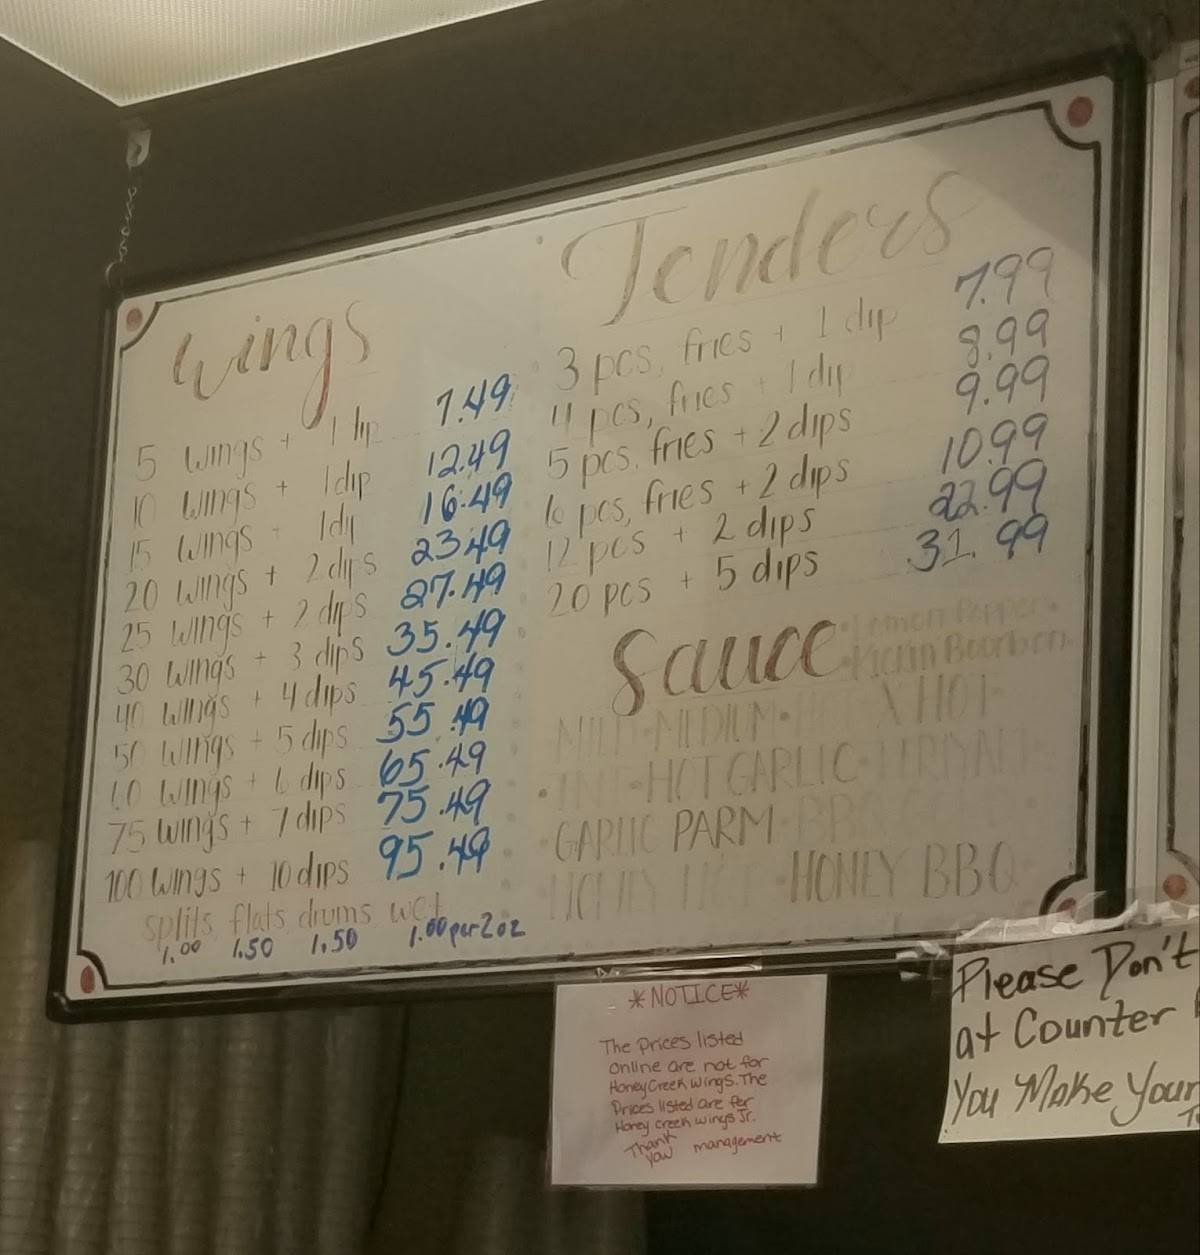 Wings
5 wings + 1 dip 7.49
10 wings + 1 dip 12.49
15 wings + 1 dip 16.49
20 wings + 2 dips 23.49
25 wings + 2 dips 27.49
30 wings + 3 dips 35.49
40 wings + 4 dips 45.49
50 wings + 5 dips 55.49
60 wings + 6 dips 65.49
75 wings + 7 dips 75.49
100 wings + 10 dips 95.49
splits flats drums wet
1.00 1.50 1.50 1.00 per 2oz
Tenders
3 pcs, fries + 1 dip 7.99
4 pcs, fries + 1 dip 8.99
5 pcs, fries + 2 dips 9.99
6 pcs, fries + 2 dips 10.99
12 pcs + 2 dips 22.99
20 pcs + 5 dips 31.99
Sauce
•Lemon Pepper•
•Kickin Bourbon•
MILD•MEDIUM• X HOT•
•HOT GARLIC•TERIYAKI
•GARLIC PARM•BBQ
HONEY HOT•HONEY BBQ
*NOTICE*
The prices listed
online are not for
Honey Creek Wings. The
Prices listed are for
Honey creek wings Jr.
Thank
you management
Please Don't
at Counter
You Make Your